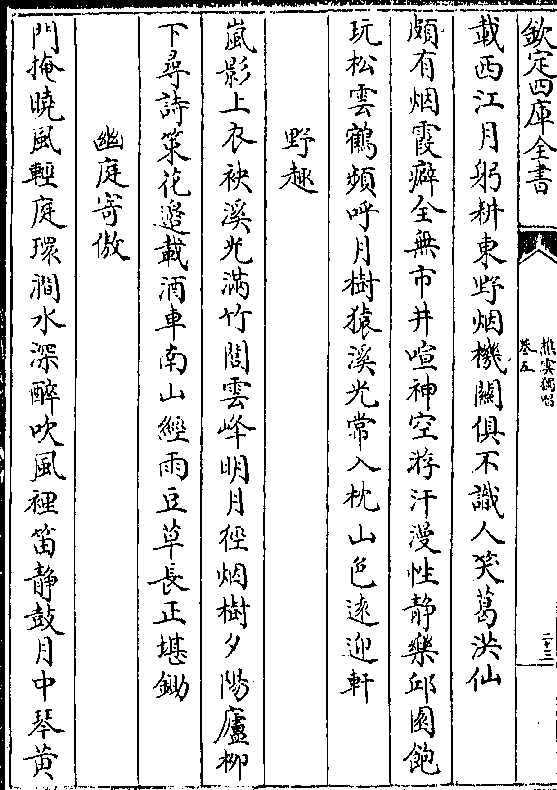 欽定四庫全書
樵雲獨唱
卷五
二十三
載西江月躬耕東野烟機關俱不識人笑葛洪仙
頗有烟霞癖全無市井喧神空游汗漫性静樂邱園飽
玩松雲鶴頻呼月樹猿溪光常入枕山色遠迎軒
野趣
嵐影上衣袂溪光滿竹閭雲峰明月徑烟樹夕陽廬柳
下尋詩策花邉載酒車南山經雨豆草長正堪鋤
幽庭寄傲
門掩曉風輕庭環澗水深醉吹風裡笛静鼓月中琴黄